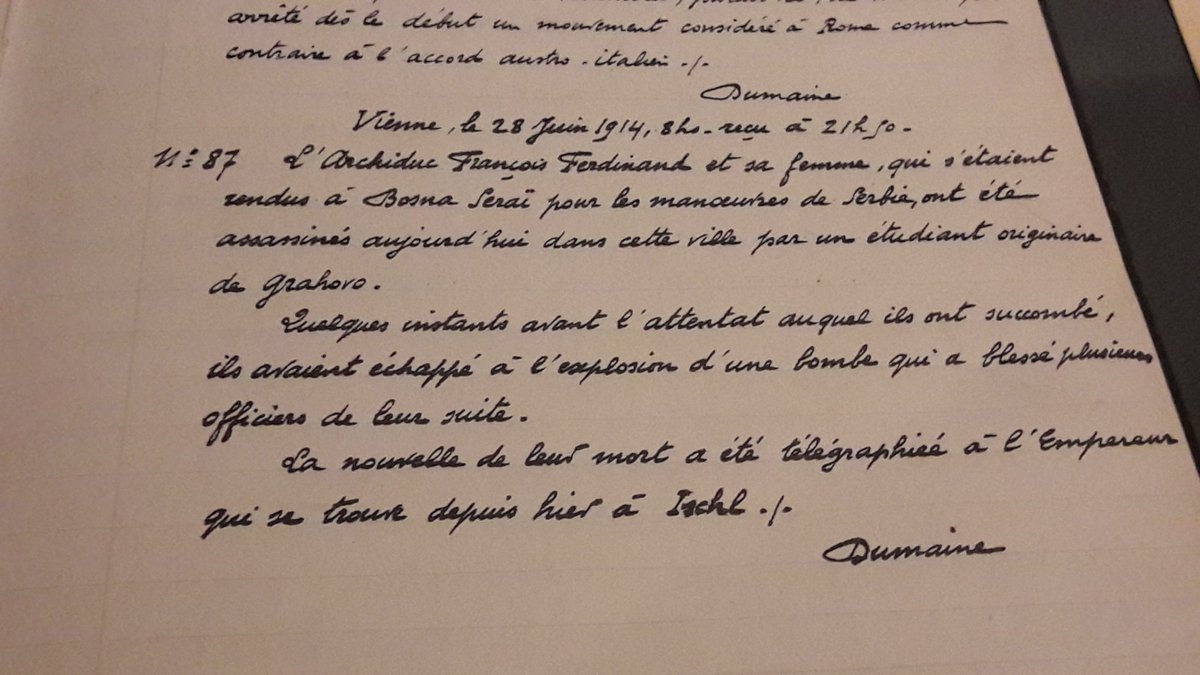 arrêté dès le début un mouvement considéré à Rome comme
contraire à l'accord austro-italien ./.
Dumaine
Vienne, le 28 Juin 1914, 8hs - reçu à 21h50 -
N° 87 L'Archiduc François Ferdinand et sa femme, qui s'étaient
rendus à Bosna Seraï pour les manœuvres de Serbie, ont été
assassinés aujourd'hui dans cette ville par un étudiant originaire
de Grahovo.
Quelques instants avant l'attentat auquel ils ont succombé,
ils avaient échappé à l'explosion d'une bombe qui a blessé plusieurs
officiers de leur suite.
La nouvelle de leur mort a été télégraphiée à l'Empereur
qui se trouve depuis hier à Ischl ./.
Dumaine